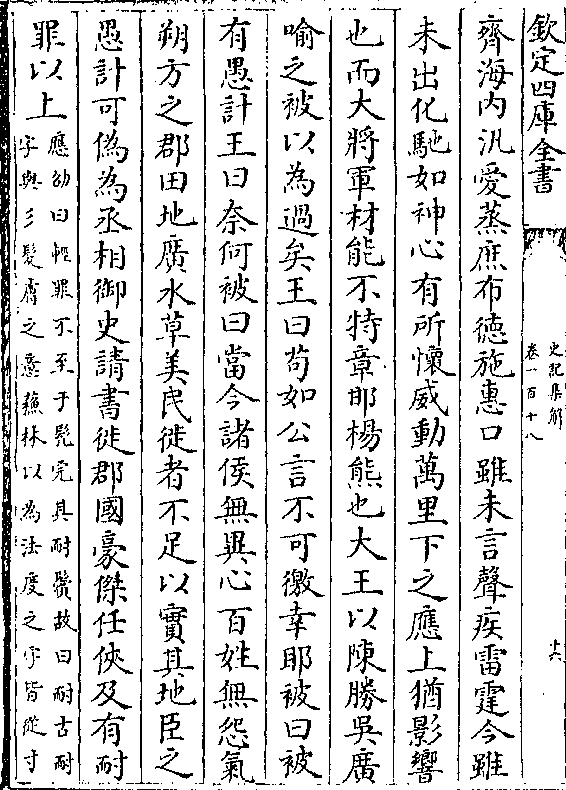 欽定四庫全書
史記集解
卷一百十八
十六
齊海内汎愛蒸庶布德施惠口雖未言聲疾雷霆今雖
未出化馳如神心有所懷威動萬里下之應上猶影響
也而大將軍材能不特章邯楊熊也大王以陳勝吳廣
喻之被以為過矣王曰苟如公言不可徼幸耶被曰被
有愚計王曰奈何被曰當今諸侯無異心百姓無怨氣
朔方之郡田地廣水草美民徙者不足以實其地臣之
愚計可偽為丞相御史請書徙郡國豪傑任俠及有耐
罪以上
應劭曰輕罪不至于髠完其耐鬢故曰耐古耐
字與彡髮膚之意蘓林以為法度之字皆從寸